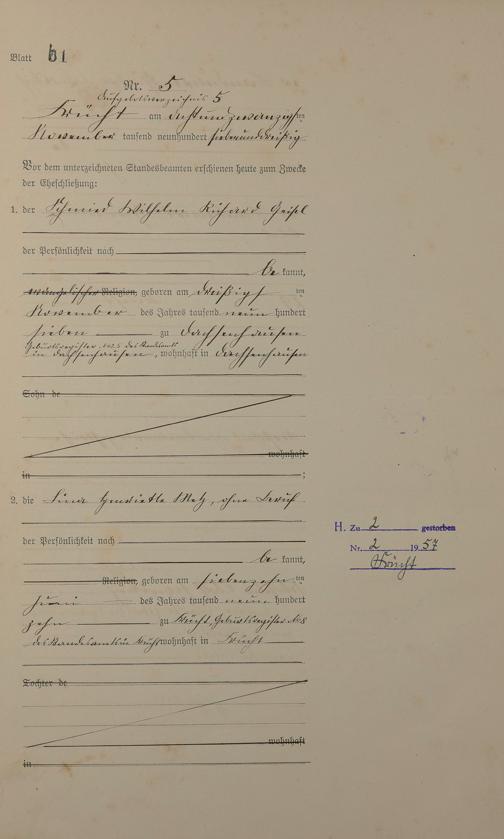 Blatt 61
Nr. 5
Aufgebotsverzeichnis 5
Frücht am achtundzwanzigsten
November tausend neunhundert siebenunddreißig
Vor dem unterzeichneten Standesbeamten erschienen heute zum Zwecke
der Eheschließung:
1. der Schmied Wilhelm Richard Geisel
der Persönlichkeit nach
be kannt,
evangelischer Religion, geboren am dreißigsten
November des Jahres tausend neun hundert
sieben zu Dachsenhausen
Geburtsregister No. 5 des Standesamts
in Dachsenhausen, wohnhaft in Dachsenhausen
Sohn de
wohnhaft
in ;
2. die Lina Henriette Metz, ohne Beruf
der Persönlichkeit nach
be kannt,
Religion, geboren am siebenzehnten
Juni des Jahres tausend neun hundert
zehn zu Frücht, Geburtsregister No. 8
des Standesamts in Frücht wohnhaft in Frücht
Tochter de
wohnhaft
in
H. Zu 2 gestorben
Nr. 2 1957
Frücht